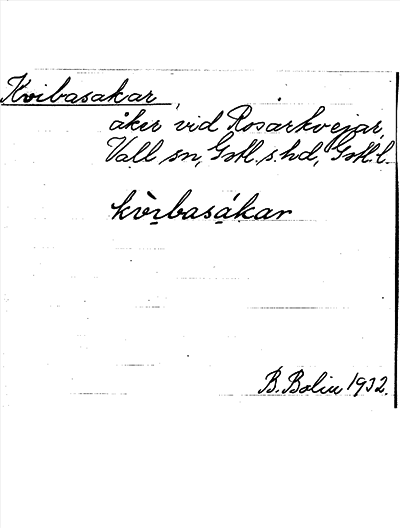 Kvibasakar,
åker vid Rosarkvejar,
Vall sn, Gotl. s. hd, Gotl. l.
kvi̱basá̱kar
B. Bolin 1932.